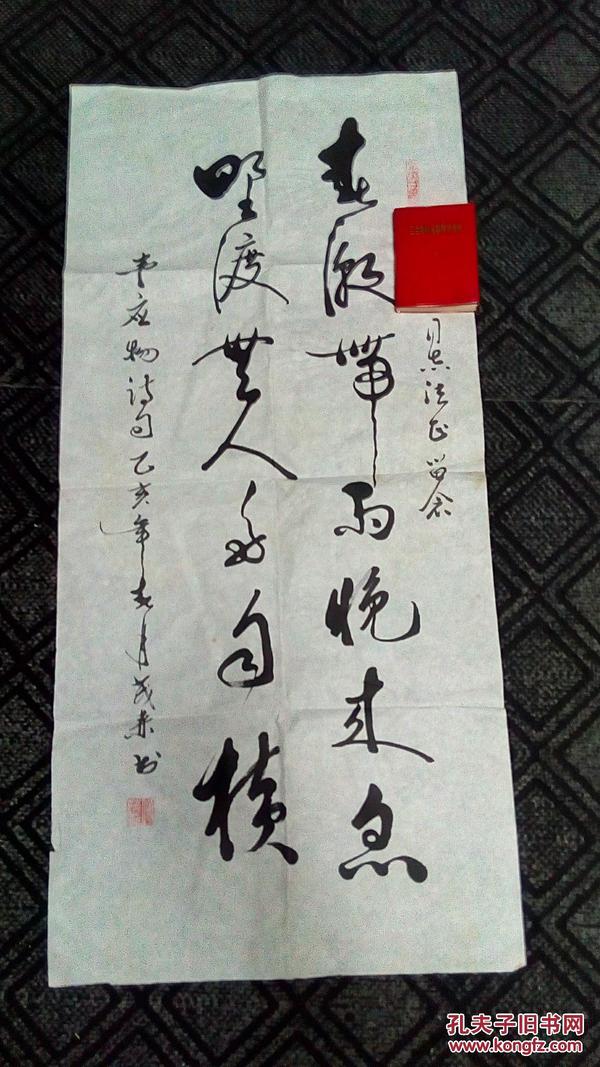 同志法正留念
春潮帶雨晚来急
野渡無人舟自横
韦应物诗句乙亥年春月 书
孔夫子旧书网
www.kongfz.com